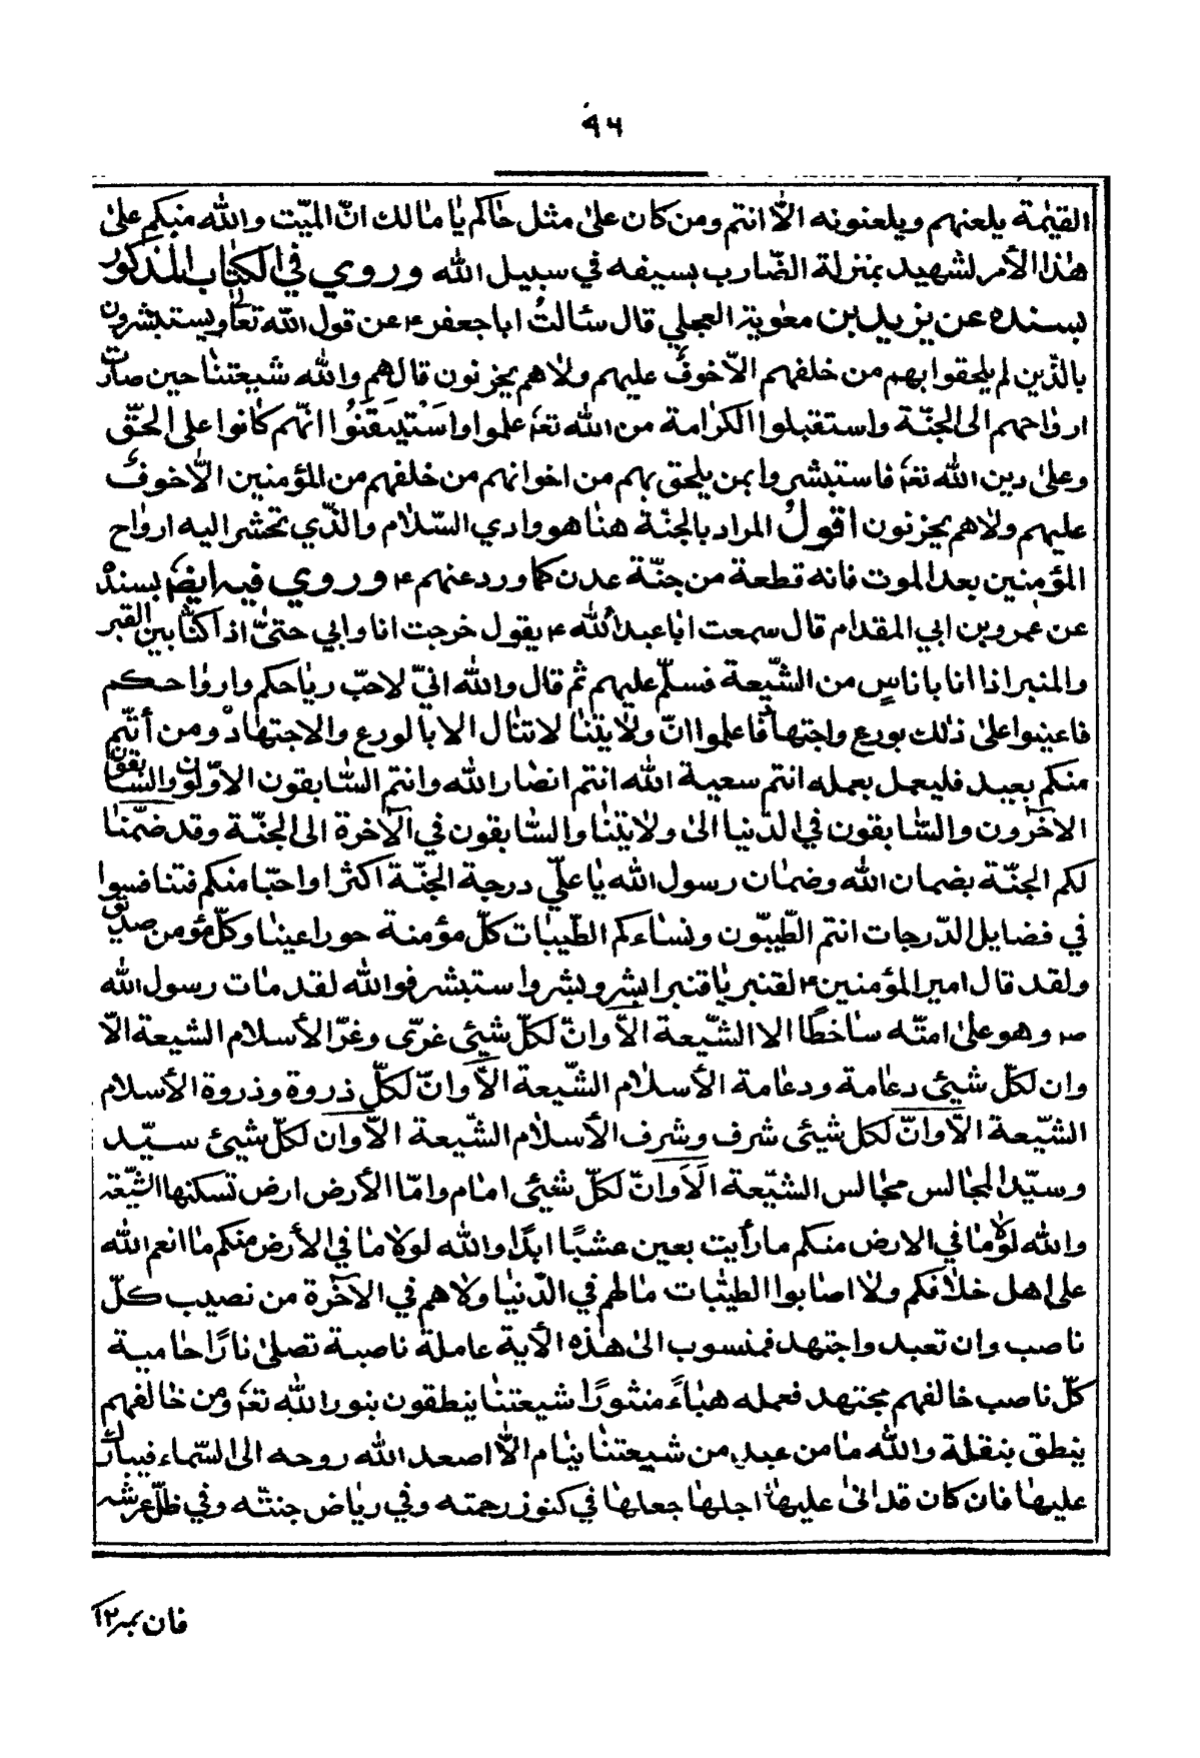 ٩٦
القيٰمة يلعنهم ويلعنونه الّا انتم ومن كان علىٰ مثل حٰالكم يٰا مٰالك انّ الميّت واللّٰه منكم علىٰ
هٰذا الأمر لشهيد بمنزلة الضّارب بسيفه في سبيل اللّٰه وروي في الكتٰاب المذكور
بسنده عن يزيد بن معٰوية العجلي قال سئالتُ ابا جعفر ٤ عن قول اللّٰه تعٰالى ويستبشرون
بالذّين لم يلحقوا بهم من خلفهم الّا خوفٌ عليهم ولٰا هم يحزنون قال هم واللّٰه شيعتنٰا حين صٰارت
اروٰاحهم الى الجنّة واستقبلوا الكرٰامة من اللّٰه تعٰ علموا واسْتَيقَنُوا انّهم كٰانوا على الحقّ
وعلىٰ دين اللّٰه تعٰ فاستبشروا بمن يلحق بهم من اخوانهم من خلفهم من المؤمنين الّا خوفٌ
عليهم ولٰا هم يحزنون اقولُ المراد بالجنّة هنٰا هو وادي السّلٰام والذّي تحشر اليه اروٰاح
المؤمنين بعد الموت فانه قطعة من جنّة عدن كمٰا ورد عنهم ٤ وروي فيه ايضٰ بسنده
عن عمرو بن ابي المقدٰام قال سمعت ابٰا عبد اللّٰه ٤ يقول خرجت انا وابي حتىّٰ اذا كنّٰا بين القبر
والمنبر اذا انا باناسٍ من الشّيعة فسلّم عليهم ثم قال واللّٰه انيّ لاحبّ ريٰاحكم واروٰاحكم
فاعينوا علىٰ ذٰلك بورع واجتهٰاد فٰاعلموا انّ ولٰايتنٰا لا تنٰال الا بالورع والاجتهٰاد ومن أئتم
منكم بعبد فليعمل بعمله انتم سعية اللّٰه انتم انصٰار اللّٰه وانتم السّٰابقون الاوّلون والسّٰابقون
الآخرون والسّٰابقون في الدّنيا الىٰ ولٰايتنٰا والسّٰابقون في الآخرة الى الجنّة وقد ضمّنٰا
لكم الجنّة بضمان اللّٰه وضمٰان رسول اللّٰه يٰا علّي درجة الجنّة اكثرا واحبّا منكم فتنافسوا
في فضايل الدّرجات انتم الطّيبّون ونسٰاءكم الطيّبٰات كلّ مؤمنة حوراعينٰا وكلّ مؤمن صدّيق
ولقد قال امير المؤمنين ٤ لقنبر يٰا قنبر ابشر وبشر واستبشر فواللّٰه لقد مٰات رسول اللّٰه
صہ وهو علىٰ امتّه سٰاخطًا الا الشّيعة الٰا وانّ لكلّ شيئى غرّى وغرّا الأسلام الشيعة الّا
وان لكلّ شيئى دعٰامة ودعٰامة الأسلٰام الشّيعة الّٰا وانّ لكلّ ذروة وذروة الأسلام
الشّيعة الّا وانّ لكل شيئى شرف وشرف الأسلٰام الشّيعة الّا وان لكلّ شيئ سيّد
وسيّد المجٰالس مجٰالس الشيّعة الَٰا وَانّ لكلّ شيئى امٰام وامّا الأرض ارض تسكنها الشّيعة
واللّٰه لولٰا مٰا في الارض منكم ما رأيت بعين عشبًا ابدًا واللّٰه لولٰا مٰا في الأرض منكم مٰا انعم اللّٰه
على اهل خلٰافكم ولٰا اصٰابوا الطيّبٰات مٰا لهم في الدّنيٰا ولٰا هم في الآخرة من نصيب كلّ
ناصب وان تعبد واجتهد فمنسوب الىٰ هٰذه الأية عاملة ناصبة تصلىٰ نٰارًا حٰامية
كلّ ناصب خالفهم مجتهد فعمله هبٰاءً منثورًا شيعتنٰا ينطقون بنور اللّٰه تعٰ ومن خالفهم
ينطق بنقلة واللّٰه مٰا من عبد من شيعتنٰا ينٰام الّٰا اصعد اللّٰه روحه الى السّمٰاء فيبارك
عليهٰا فان كان قد اتىٰ عليهٰا اجلهٰا جعلهٰا في كنوز رحمته وفي ريٰاض جنتّه وفي ظلّ عرشه
فان